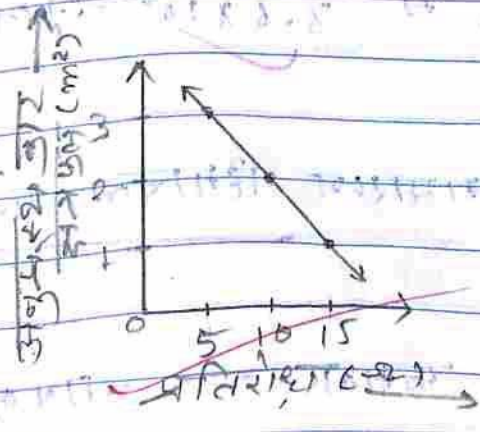 अनुप्रस्थ काट
क्षेत्रफल (m²)
3
2
1
0
5 10 15
प्रतिरोध (Ω)